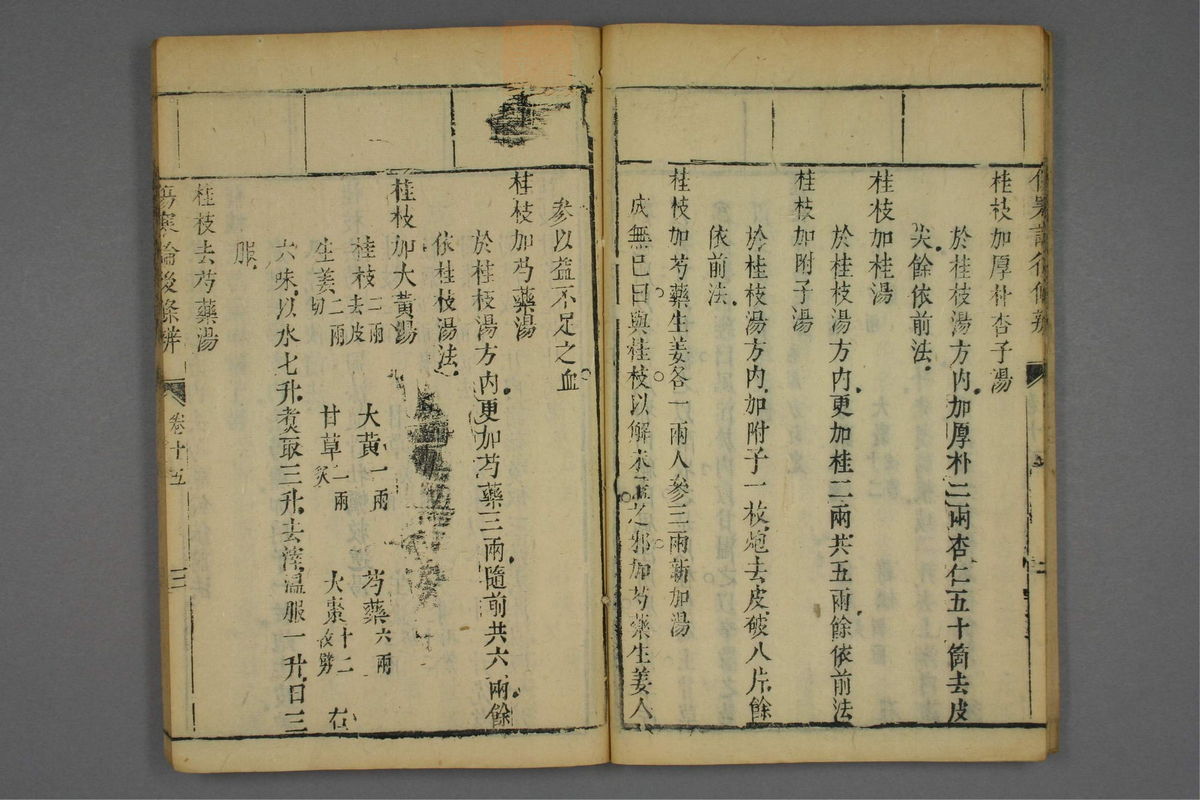 桂枝加厚朴杏子湯
於桂枝湯方内加厚朴二兩杏仁五十箇去皮
尖餘依前法
桂枝加桂湯
於桂枝湯方内更加桂二兩共五兩餘依前法
桂枝加附子湯
於桂枝湯方内加附子一枚炮去皮破八片餘
依前法
桂枝加芍藥生姜各一兩人參三兩新加湯
成無已曰與桂枝以解未盡之邪加芍藥生姜人
參以益不足之血
桂枝加芍藥湯
於桂枝湯方内更加芍藥三兩隨前共六兩餘
依桂枝湯法
桂枝加大黃湯
桂枝二兩去皮 大黃一兩 芍藥六兩
生姜二兩切 甘草一兩炙 大棗十二枚劈 右
六味以水七升煑取三升去滓溫服一升日三
服
桂枝去芍藥湯
傷寒論後條辨 卷十五 三